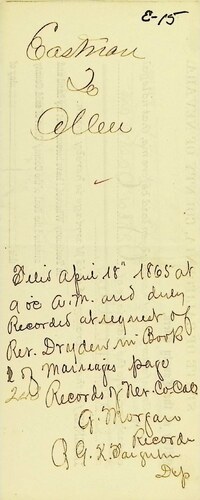 E-15
Eastman
To
Allen
Filed April 18" 1865 at
9 oc A.M. and duly
Recorded at request of
Rev. Dryden in Book
2 of Marriages page
240 Records of Nev. Co. Cal
G. Morgan
Recorder
By G. K. Farquhar
Dep